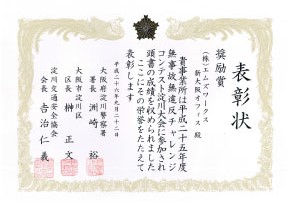 表彰状
奨励賞
(株)エムズワークス
新大阪オフィス 殿
貴事業所は平成二十五年度
無事故無違反チャレンジ
コンテスト淀川大会に参加され
頭書の成績を収められました
ここにその栄誉をたたえて
表彰します
平成二十六年九月二十二日
大阪府淀川警察署
署長 洲崎 裕
大阪市淀川区
区長 榊 正文
淀川交通安全協会
会長 吉治仁義